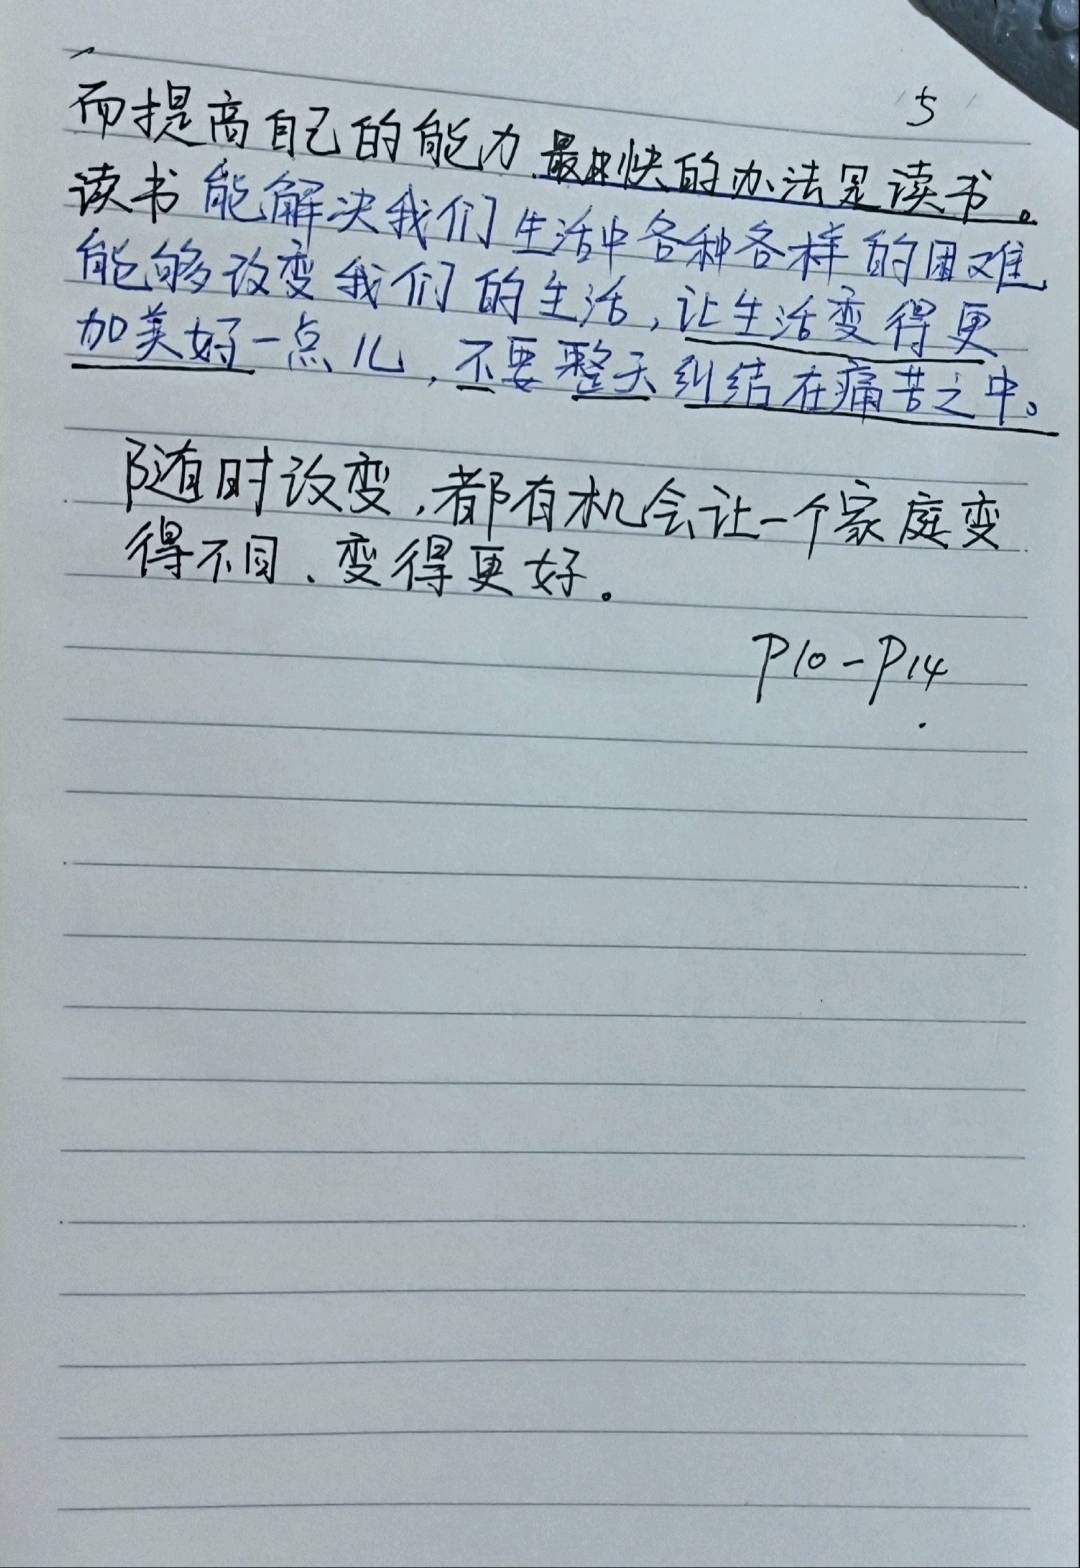 5
而提高自己的能力,最快的办法是读书。
读书能解决我们生活中各种各样的困难,
能够改变我们的生活,让生活变得更
加美好一点儿,不要整天纠结在痛苦之中。
随时改变,都有机会让一个家庭变
得不同、变得更好。
P10-P14